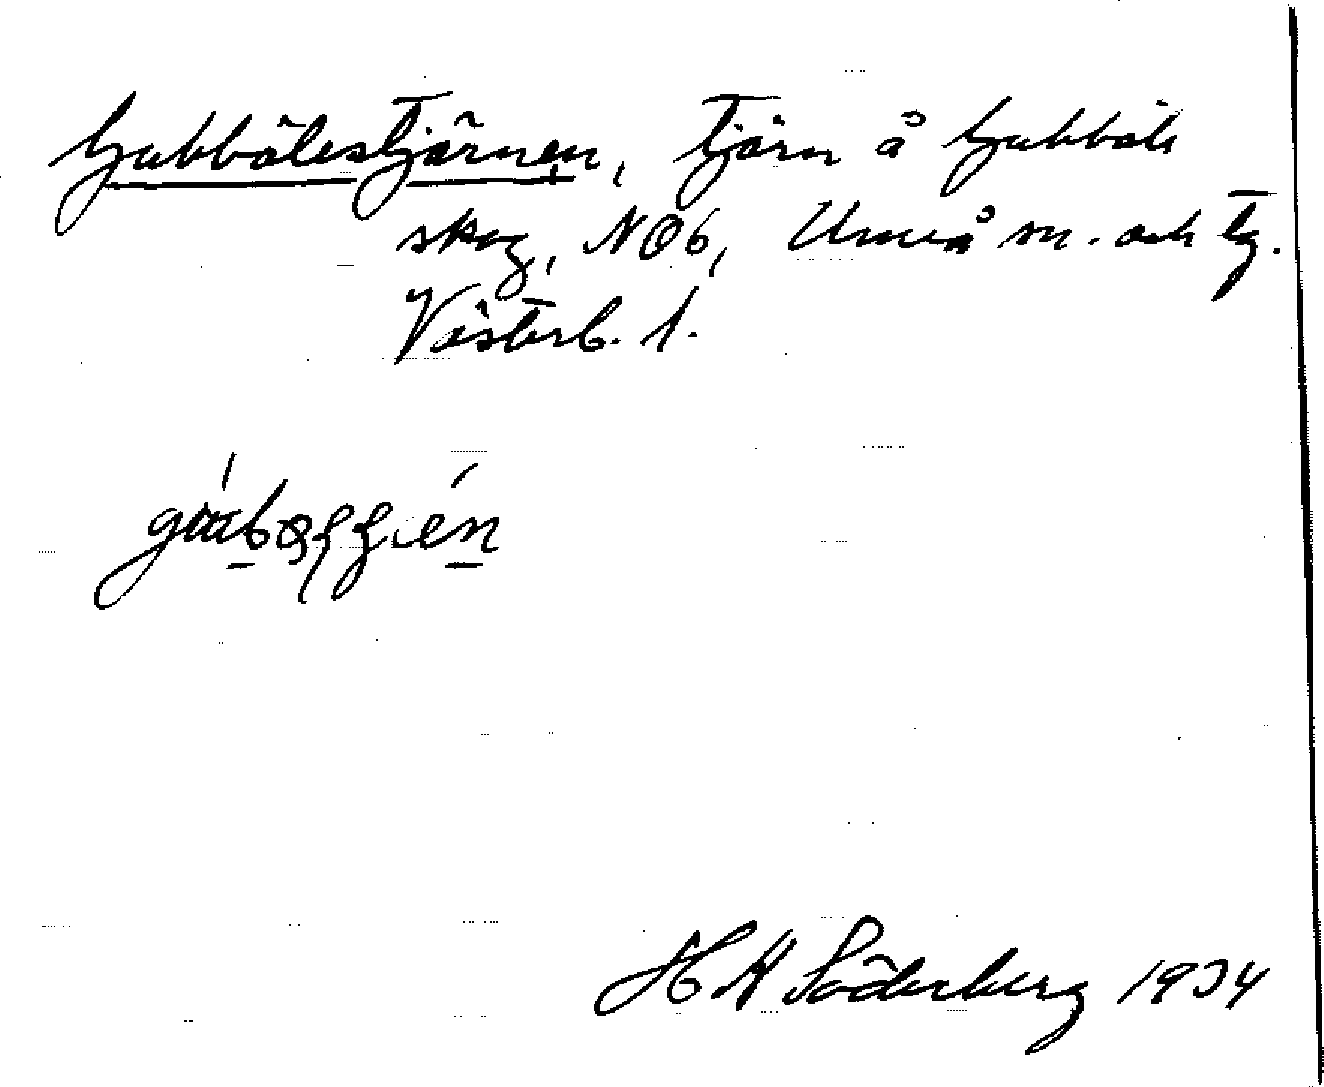 Gubbölestjärnen, tjärn å Gubböle
skog, NO6, Umeå sn. och tg.
Västerb. l.
H K Söderberg 1934